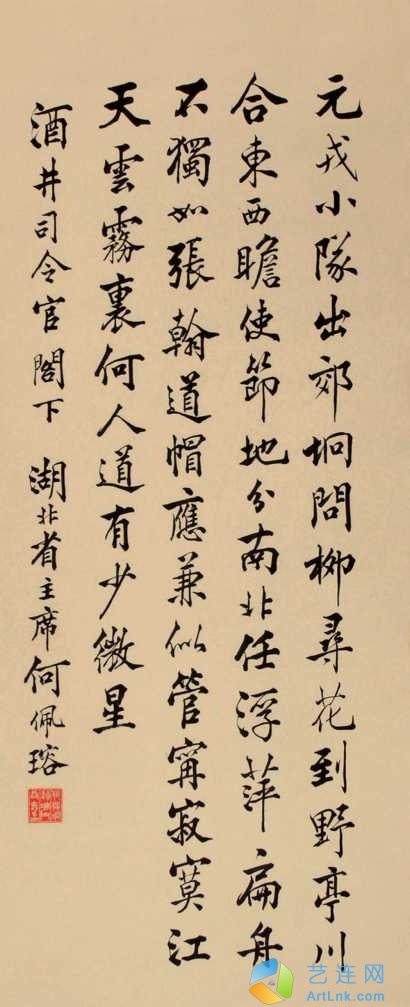 元戎小隊出郊坰問柳尋花到野亭川
合東西瞻使節地分南北任浮萍扁舟
不獨如張翰道帽應兼似管甯寂寞江
天雲霧裏何人道有少微星
酒井司令官閣下 湖北省主席何佩瑢
艺连网
ArtLnk.com